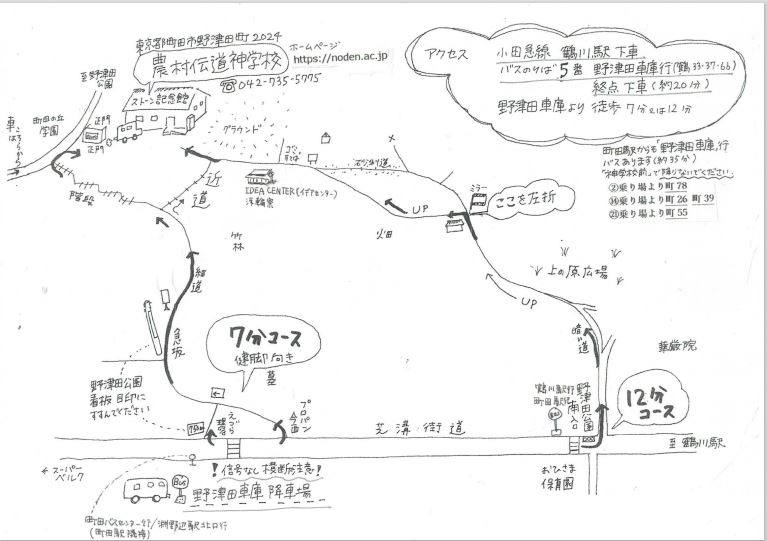 東京都町田市野津田町2024
農村伝道神学校
ホームページ
https://noden.ac.jp
☎042-735-5775
アクセス
小田急線 鶴川駅下車
バスのりば5番 野津田車庫行(鶴33・37・66)
終点下車(約20分)
野津田車庫より徒歩7分又は12分
町田駅からも野津田車庫行
バスあります(約35分)
"神学校前"で降りないでください。
②乗り場より町78
⑭乗り場より町26 町39
㉑乗り場より町55
至野津田
公園
町田の丘
学園
車
こちらから
正門
正門
ストーン記念館
グラウンド
ゴミ
すてば
じゃり道
階段
近道
IDEA CENTER(イデアセンター)
竹林
畑
UP
ミラー
ここを左折
上の原広場
UP
細道
急坂
暗い道
華厳院
7分コース
健脚向き
墓
野津田公園
看板目印に
すすんでください
プロパン
今西
鶴川駅行
町田駅行
Bus
野津田公園
南入口
12分
コース
芝溝街道
至鶴川駅
←スーパー
ベルク
!信号なし横断注意!
Bus
野津田車庫 降車場
おひさま
保育園
町田バスセンター行/淵野辺駅北口行
(町田駅隣接)